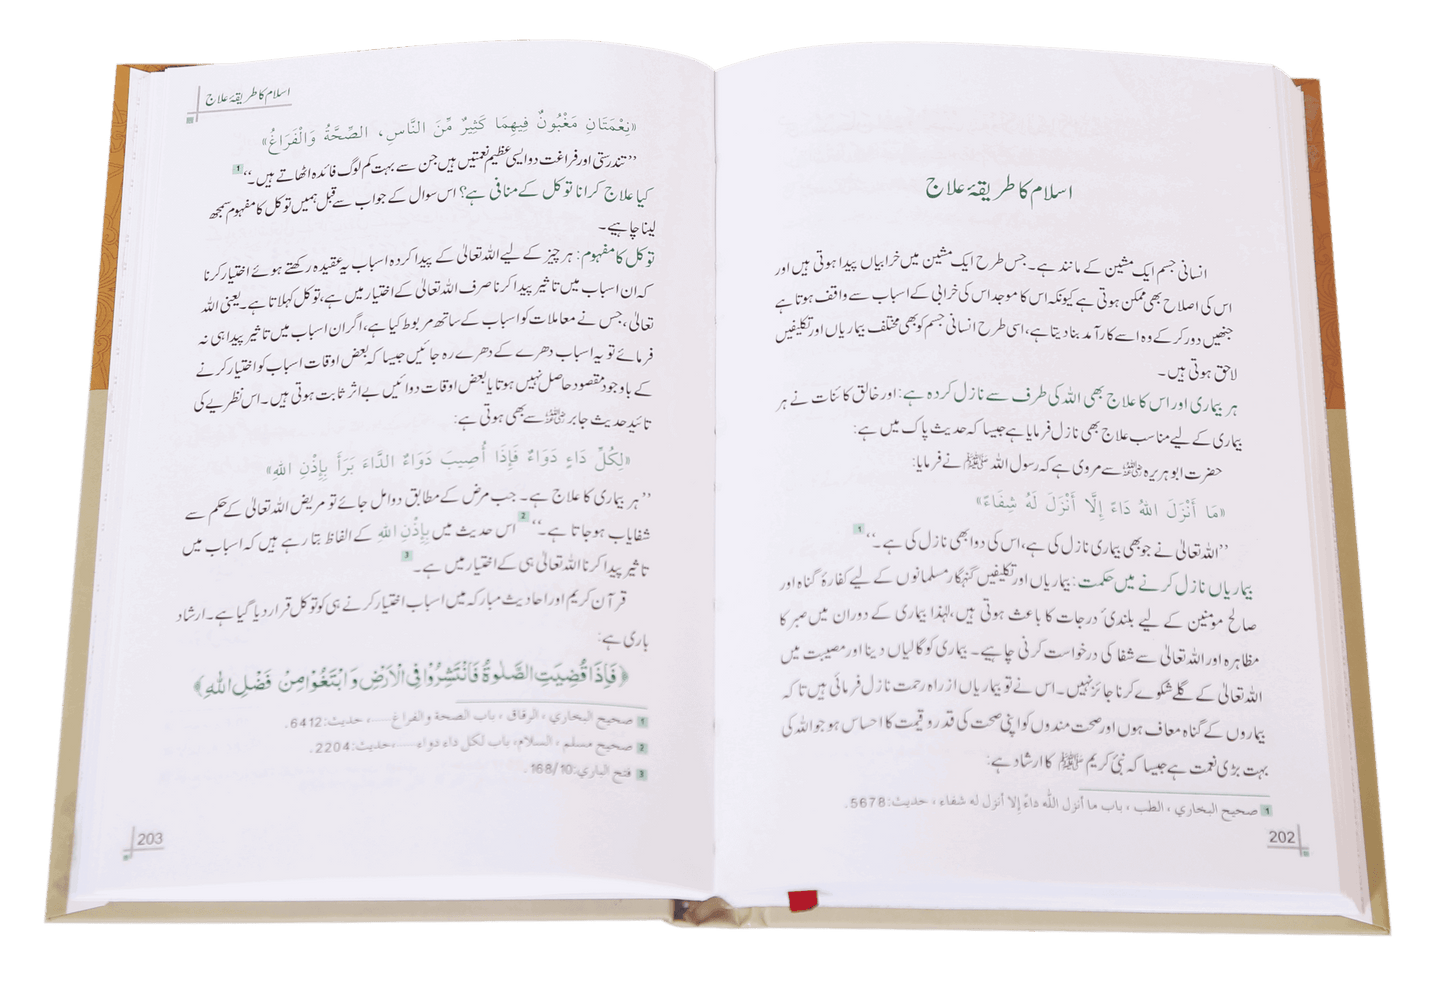 اسلام کا طریقۂ علاج
انسانی جسم ایک مشین کے مانند ہے۔ جس طرح ایک مشین میں خرابیاں پیدا ہوتی ہیں اور
اس کی اصلاح بھی ممکن ہوتی ہے کیونکہ اس کا موجد اس کی خرابی کے اسباب سے واقف ہوتا ہے
جنھیں دور کر کے وہ اسے کارآمد بنا دیتا ہے، اسی طرح انسانی جسم کو بھی مختلف بیماریاں اور تکلیفیں
لاحق ہوتی ہیں۔
ہر بیماری اور اس کا علاج بھی اللہ کی طرف سے نازل کردہ ہے: اور خالق کائنات نے ہر
بیماری کے لیے مناسب علاج بھی نازل فرمایا ہے جیسا کہ حدیث پاک میں ہے:
حضرت ابو ہریرہ رضی اللہ عنہ سے مروی ہے کہ رسول اللہ ﷺ نے فرمایا:
«مَا أَنْزَلَ اللّٰهُ دَاءً إِلَّا أَنْزَلَ لَهُ شِفَاءً»
’’اللہ تعالیٰ نے جو بھی بیماری نازل کی ہے، اس کی دوا بھی نازل کی ہے۔‘‘ 1
بیماریاں نازل کرنے میں حکمت: بیماریاں اور تکلیفیں گنہگار مسلمانوں کے لیے کفارۂ گناہ اور
صالح مومنین کے لیے بلندیٔ درجات کا باعث ہوتی ہیں، لہٰذا بیماری کے دوران میں صبر کا
مظاہرہ اور اللہ تعالیٰ سے شفا کی درخواست کرنی چاہیے۔ بیماری کو گالیاں دینا اور مصیبت میں
اللہ تعالیٰ کے گلے شکوے کرنا جائز نہیں۔ اس نے تو بیماریاں از راہ رحمت نازل فرمائی ہیں تا کہ
بیماروں کے گناہ معاف ہوں اور صحت مندوں کو اپنی صحت کی قدر و قیمت کا احساس ہو جو اللہ کی
بہت بڑی نعمت ہے جیسا کہ نبیٔ کریم ﷺ کا ارشاد ہے:
1 صحيح البخاري ، الطب ، باب ما أنزل الله داءً إلا أنزل له شفاء ، حديث:5678.
202
اسلام کا طریقۂ علاج
«نِعْمَتَانِ مَغْبُونٌ فِيهِمَا كَثِيرٌ مِّنَ النَّاسِ، الصِّحَّةُ وَالْفَرَاغُ»
’’تندرستی اور فراغت دو ایسی عظیم نعمتیں ہیں جن سے بہت کم لوگ فائدہ اٹھاتے ہیں۔‘‘ 1
کیا علاج کرانا توکل کے منافی ہے؟ اس سوال کے جواب سے قبل ہمیں توکل کا مفہوم سمجھ
لینا چاہیے۔
توکل کا مفہوم: ہر چیز کے لیے اللہ تعالیٰ کے پیدا کردہ اسباب یہ عقیدہ رکھتے ہوئے اختیار کرنا
کہ ان اسباب میں تاثیر پیدا کرنا صرف اللہ تعالیٰ کے اختیار میں ہے، توکل کہلاتا ہے۔ یعنی اللہ
تعالیٰ، جس نے معاملات کو اسباب کے ساتھ مربوط کیا ہے، اگر ان اسباب میں تاثیر پیدا ہی نہ
فرمائے تو یہ اسباب دھرے کے دھرے رہ جائیں جیسا کہ بعض اوقات اسباب کو اختیار کرنے
کے باوجود مقصود حاصل نہیں ہوتا یا بعض اوقات دوائیں بے اثر ثابت ہوتی ہیں۔ اس نظریے کی
تائید حدیث جابر رضی اللہ عنہ سے بھی ہوتی ہے:
«لِكُلِّ دَاءٍ دَوَاءٌ فَإِذَا أُصِيبَ دَوَاءُ الدَّاءَ بَرَأَ بِإِذْنِ اللّٰهِ»
’’ہر بیماری کا علاج ہے۔ جب مرض کے مطابق دوا مل جائے تو مریض اللہ تعالیٰ کے حکم سے
شفایاب ہو جاتا ہے۔‘‘ 2 اس حدیث میں بِإِذْنِ اللّٰهِ کے الفاظ بتا رہے ہیں کہ اسباب میں
تاثیر پیدا کرنا اللہ تعالیٰ ہی کے اختیار میں ہے۔ 3
قرآن کریم اور احادیث مبارکہ میں اسباب اختیار کرنے ہی کو توکل قرار دیا گیا ہے۔ ارشاد
باری ہے:
﴿فَاِذَا قُضِيَتِ الصَّلٰوةُ فَانْتَشِرُوْا فِى الْاَرْضِ وَابْتَغُوْا مِنْ فَضْلِ اللّٰهِ﴾
1 صحيح البخاري ، الرقاق ، باب الصحة والفراغ....، حديث:6412.
2 صحيح مسلم ، السلام، باب لكل داء دواء....،حديث:2204.
3 فتح الباري:168/10.
203